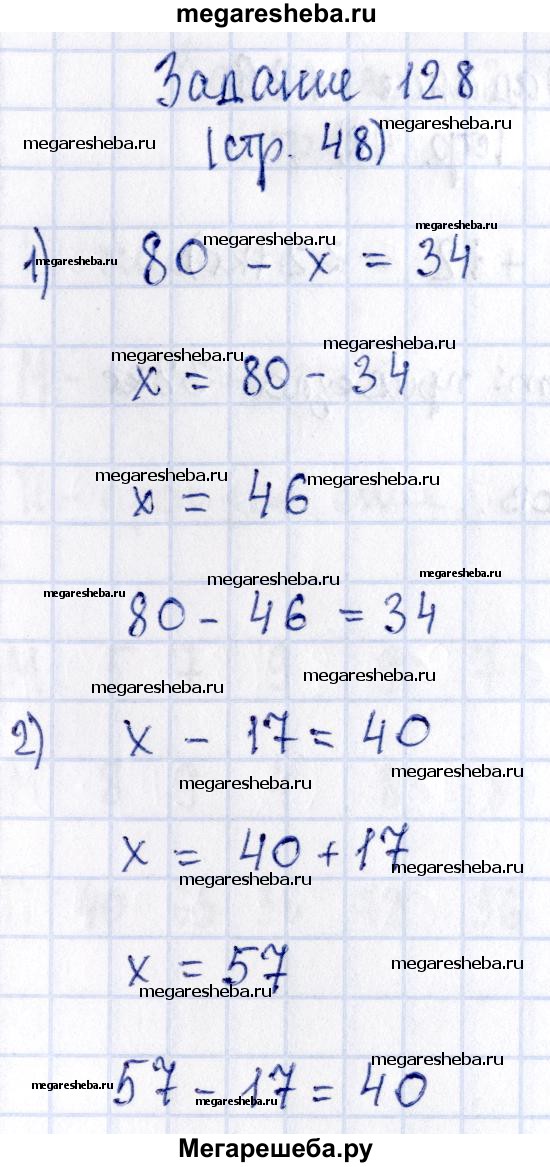 megaresheba.ru
Задание 128
megaresheba.ru
megaresheba.ru
(стр. 48)
megaresheba.ru
megaresheba.ru
megaresheba.ru
1) 80 - x = 34
megaresheba.ru
megaresheba.ru
x = 80 - 34
megaresheba.ru
megaresheba.ru
x = 46
megaresheba.ru
megaresheba.ru
megaresheba.ru
80 - 46 = 34
megaresheba.ru
megaresheba.ru
2) x - 17 = 40
megaresheba.ru
megaresheba.ru
x = 40 + 17
megaresheba.ru
megaresheba.ru
x = 57
megaresheba.ru
megaresheba.ru
megaresheba.ru
57 - 17 = 40
megaresheba.ru
megaresheba.ru
Мегарешеба.ру